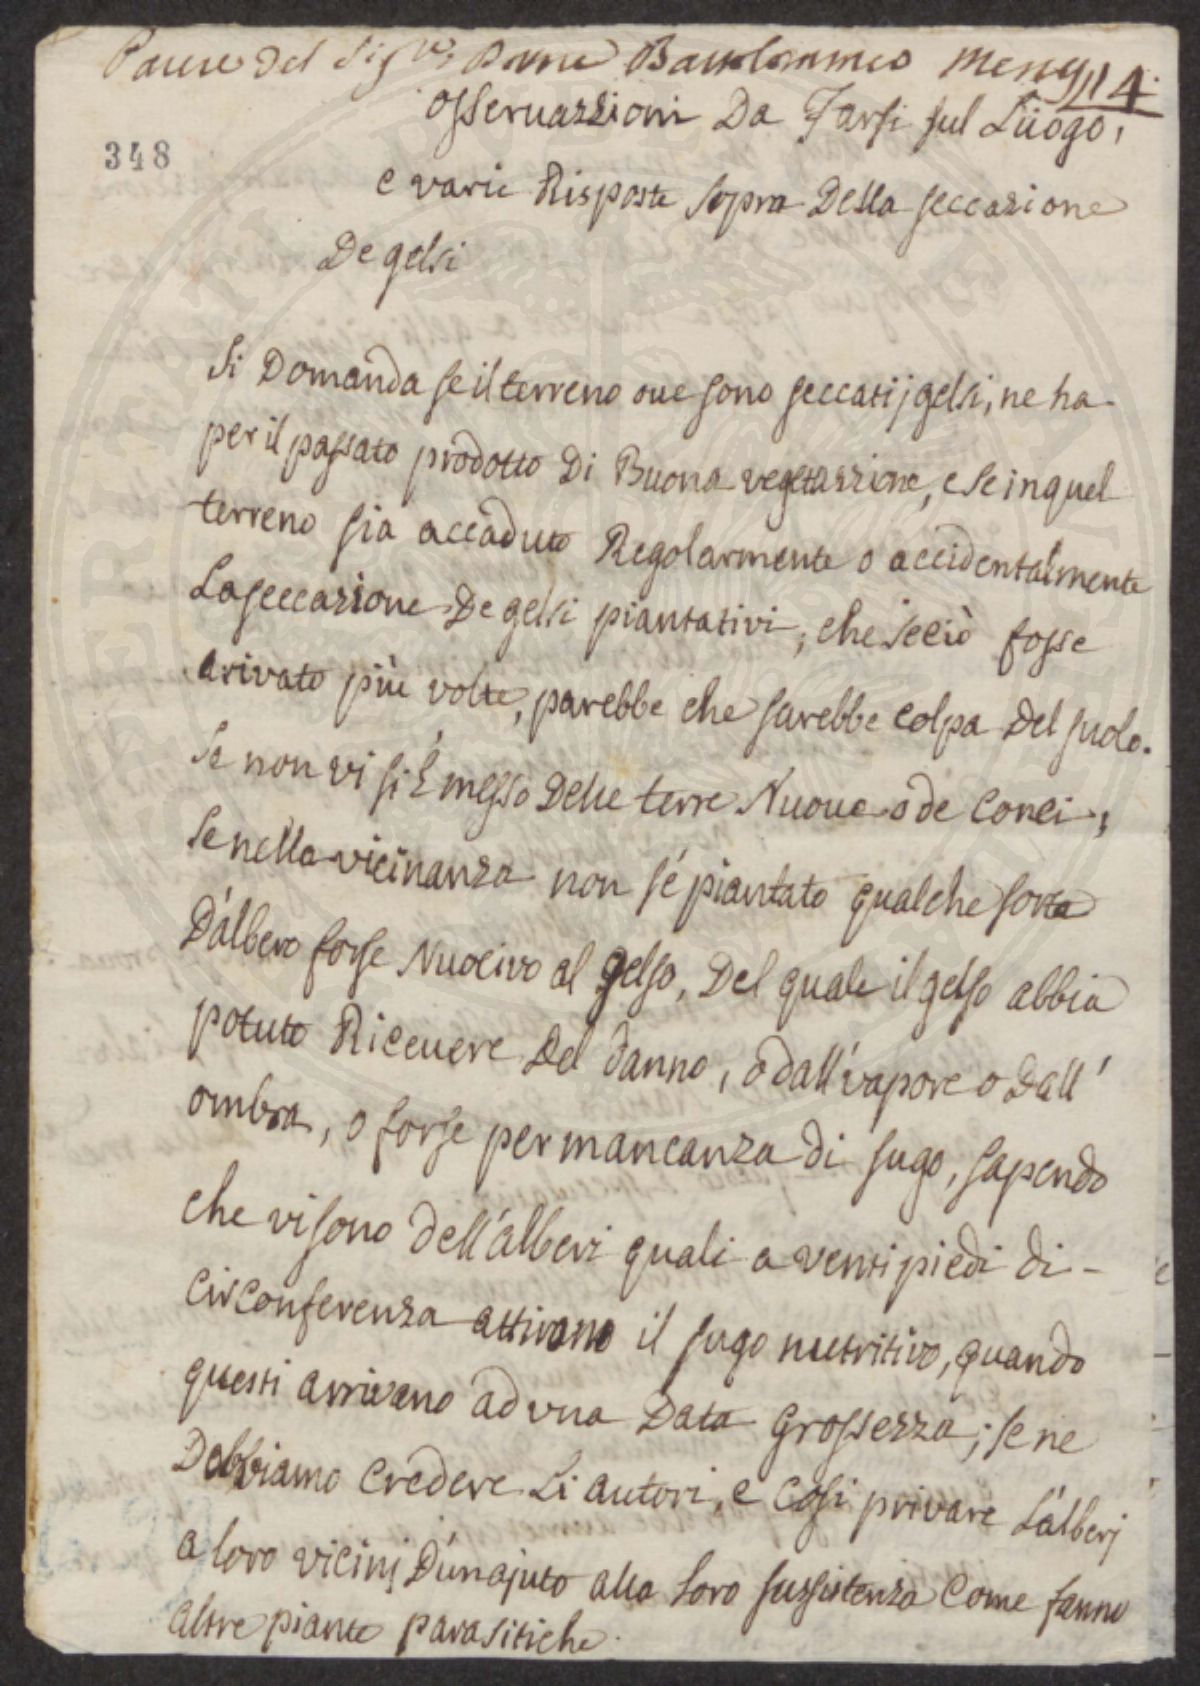 Parere del Sigr. Bartolommeo
14
osseruazzioni Da Farsi sul Lüogo,
348
e varie Risposte sopra Della seccazione
De gelsi
Si Domanda se il terreno oue sono seccati j gelsi, ne ha
per il passato prodotto Di Buona vegetazzione, e se in quel
terreno sia accaduto Regolarmente o accidentalmente
La seccazione De gelsi piantativi, che se ciò fosse
arivato più volte, parebbe che sarebbe colpa Del suolo.
Se non vi si é messo Delle terre Nuove o de Conci,
Se nella vicinanza non s'é piantato qualche sorta
D'álbero forse Nuocivo al gelso, Del quale il gelso abbia
potuto Riceuere Del danno, ó dall'vapore o Dall'
ombra, o forse per mancanza di sugo, sapendo
che vi sono dell'alberi quali a venti piedi di-
Circonferenza attirano il sugo nutritivo, quando
questi arrivano ad vna Data Grossezza; se ne
Dobbiamo Credere Li autori, e Cosi privare L'álberj
a loro vicinj D'únajuto alla Loro sussistenza Come fanno
altre piante parasitiche.